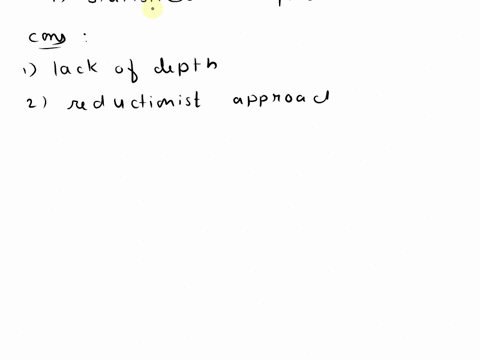 cons :
1) lack of depth
2) reductionist approac